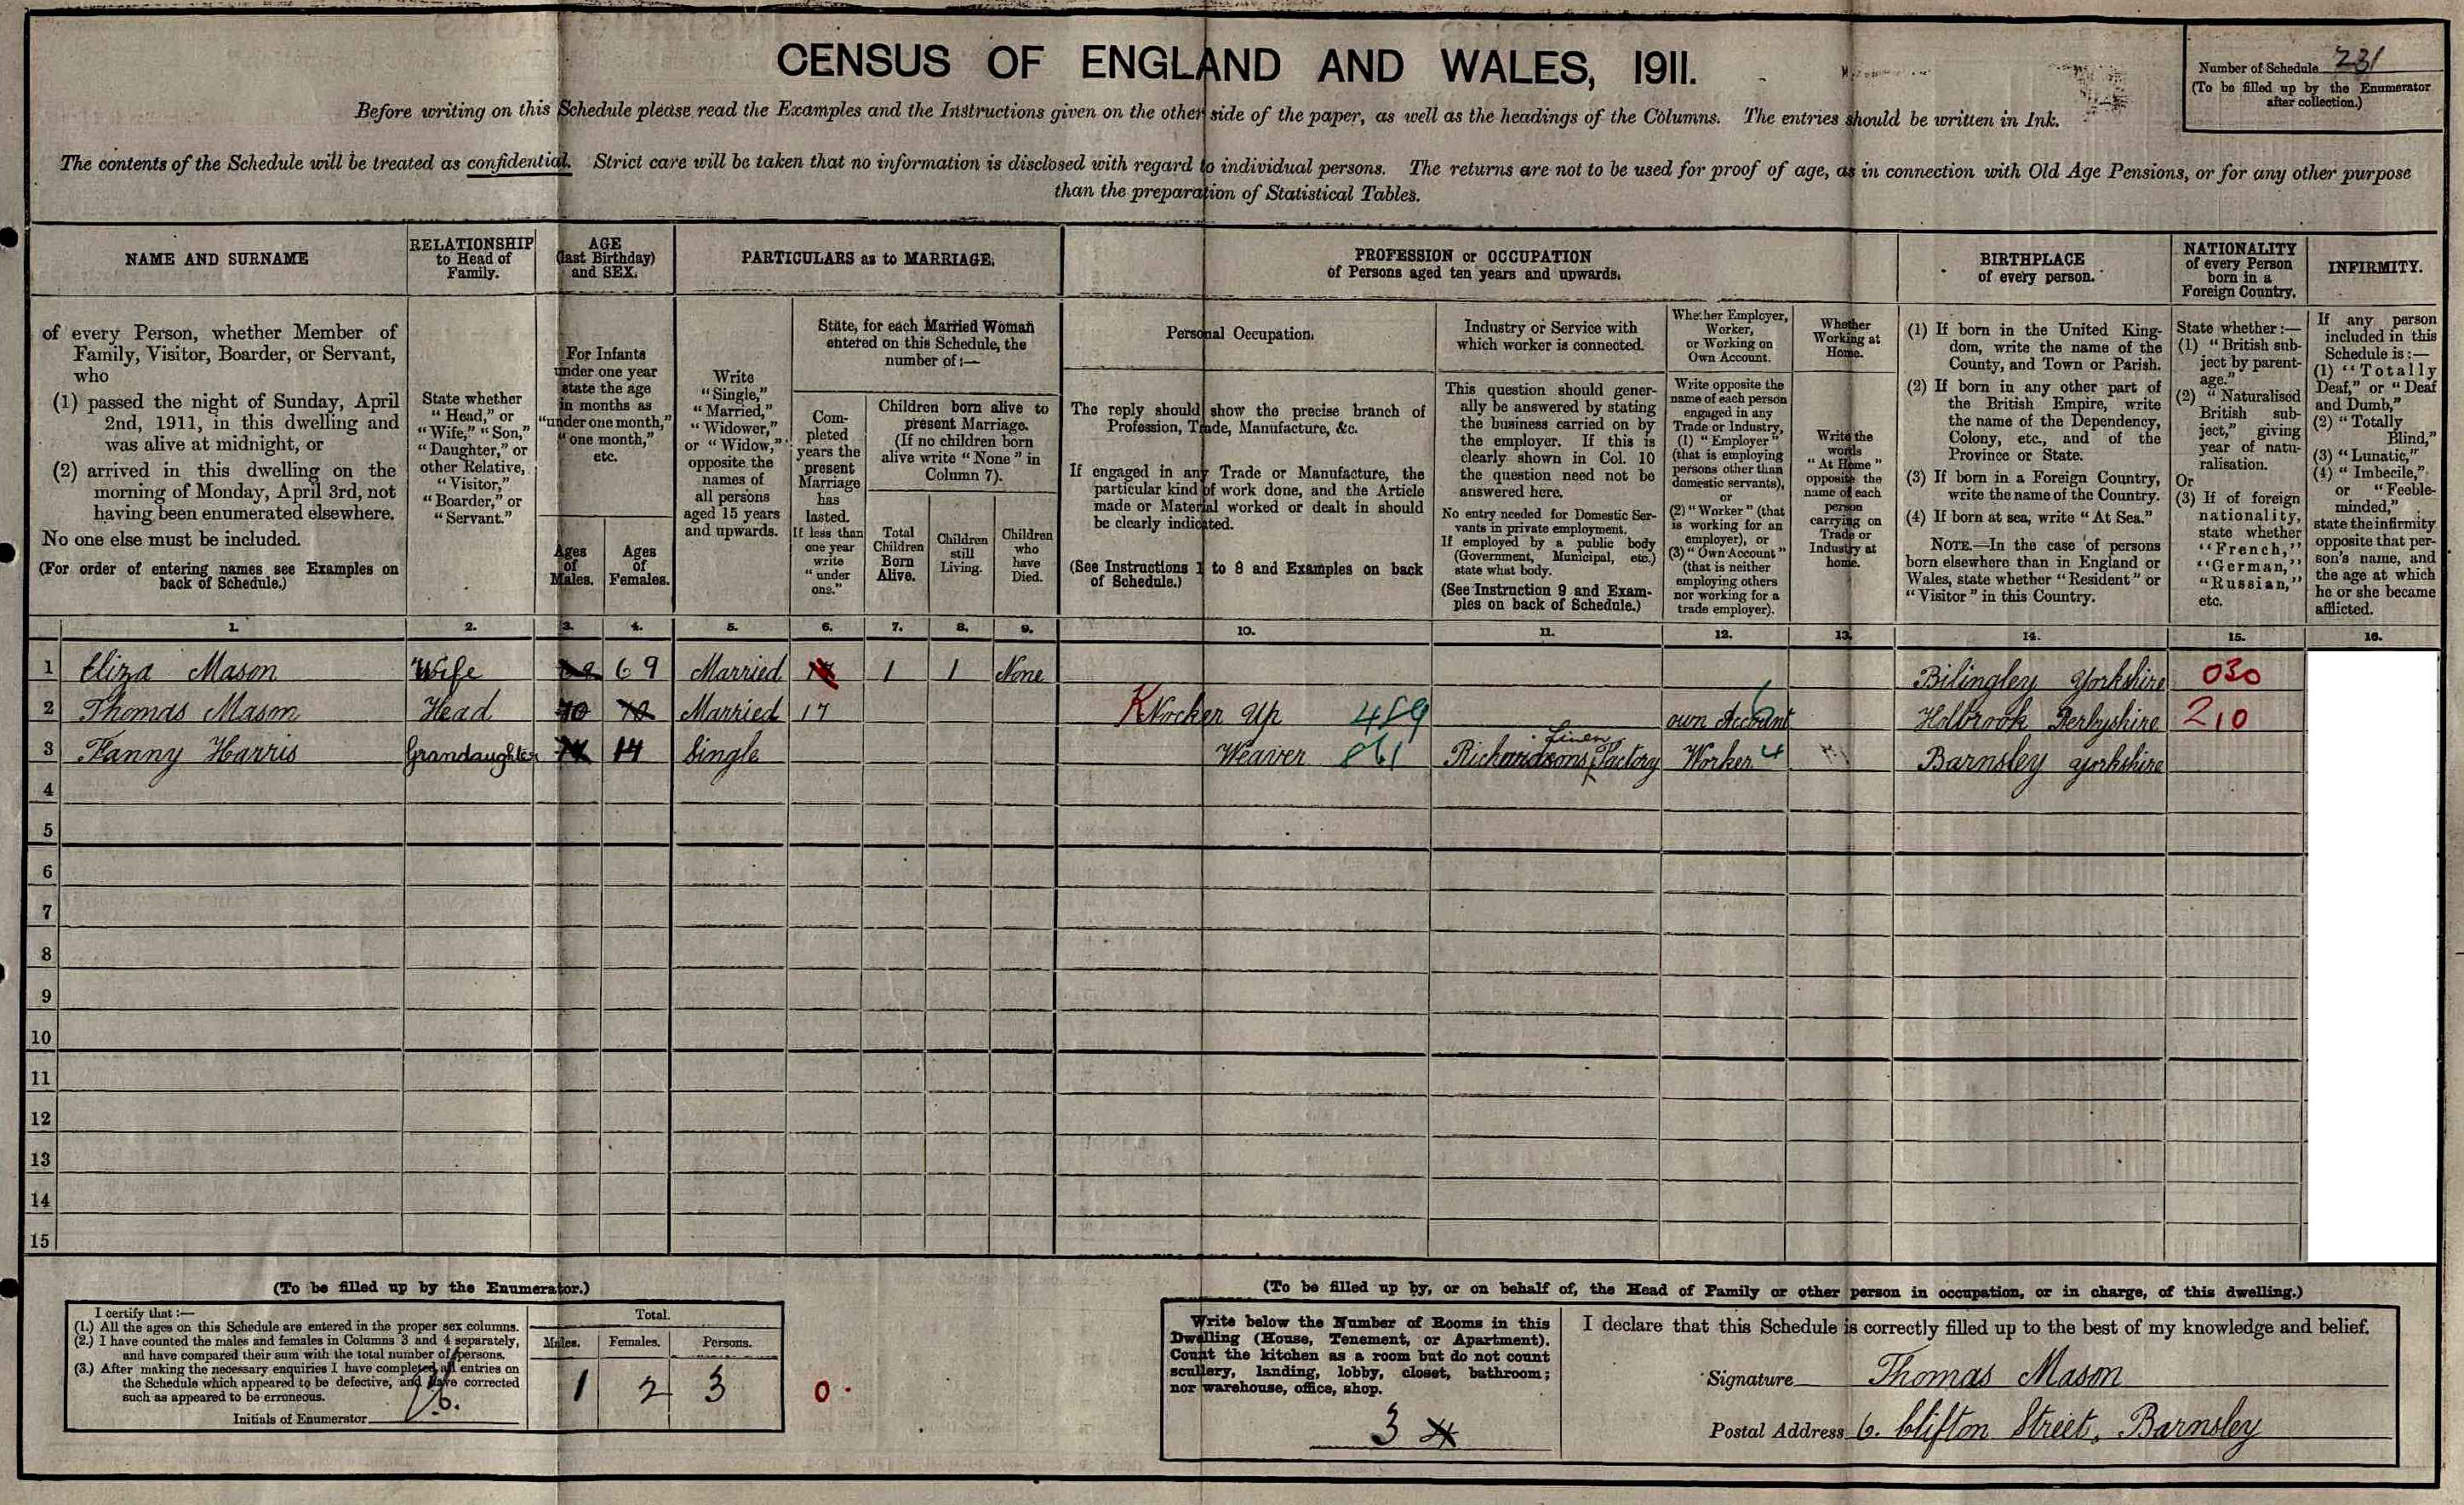 CENSUS OF ENGLAND AND WALES, 1911.
Number of Schedule 231
(To be filled up by the Enumerator
after collection.)
Before writing on this Schedule please read the Examples and the Instructions given on the other side of the paper, as well as the headings of the Columns. The entries should be written in Ink.
The contents of the Schedule will be treated as confidential. Strict care will be taken that no information is disclosed with regard to individual persons. The returns are not to be used for proof of age, as in connection with Old Age Pensions, or for any other purpose
than the preparation of Statistical Tables.
NAME AND SURNAME
of every Person, whether Member of
Family, Visitor, Boarder, or Servant,
who
(1) passed the night of Sunday, April
2nd, 1911, in this dwelling and
was alive at midnight, or
(2) arrived in this dwelling on the
morning of Monday, April 3rd, not
having been enumerated elsewhere.
No one else must be included.
(For order of entering names see Examples on
back of Schedule.)
RELATIONSHIP
to Head of
Family.
State whether
"Head," or
"Wife," "Son,"
"Daughter," or
other Relative,
"Visitor,"
"Boarder," or
"Servant."
AGE
(last Birthday)
and SEX.
For Infants
under one year
state the age
in months as
"under one month,"
"one month,"
etc.
Ages
of
Males.
Ages
of
Females.
PARTICULARS as to MARRIAGE.
Write
"Single,"
"Married,"
"Widower,"
or "Widow,"
opposite the
names of
all persons
aged 15 years
and upwards.
State, for each Married Woman
entered on this Schedule, the
number of:—
Com-
pleted
years the
present
Marriage
has
lasted.
If less than
one year
write
"under
one."
Children born alive to
present Marriage.
(If no children born
alive write "None" in
Column 7).
Total
Children
Born
Alive.
Children
still
Living.
Children
who
have
Died.
PROFESSION or OCCUPATION
of Persons aged ten years and upwards.
Personal Occupation.
The reply should show the precise branch of
Profession, Trade, Manufacture, &c.
If engaged in any Trade or Manufacture, the
particular kind of work done, and the Article
made or Material worked or dealt in should
be clearly indicated.
(See Instructions 1 to 8 and Examples on back
of Schedule.)
Industry or Service with
which worker is connected.
This question should gener-
ally be answered by stating
the business carried on by
the employer. If this is
clearly shown in Col. 10
the question need not be
answered here.
No entry needed for Domestic Ser-
vants in private employment.
If employed by a public body
(Government, Municipal, etc.)
state what body.
(See Instruction 9 and Exam-
ples on back of Schedule.)
Whether Employer,
Worker,
or Working on
Own Account.
Write opposite the
name of each person
engaged in any
Trade or Industry,
(1) "Employer"
(that is employing
persons other than
domestic servants),
or
(2) "Worker" (that
is working for an
employer), or
(3) "Own Account"
(that is neither
employing others
nor working for a
trade employer).
Whether
Working at
Home.
Write the
words
"At Home"
opposite the
name of each
person
carrying on
Trade or
Industry at
home.
BIRTHPLACE
of every person.
(1) If born in the United King-
dom, write the name of the
County, and Town or Parish.
(2) If born in any other part of
the British Empire, write
the name of the Dependency,
Colony, etc., and of the
Province or State.
(3) If born in a Foreign Country,
write the name of the Country.
(4) If born at sea, write "At Sea."
NOTE.—In the case of persons
born elsewhere than in England or
Wales, state whether "Resident" or
"Visitor" in this Country.
NATIONALITY
of every Person
born in a
Foreign Country.
State whether:—
(1) "British sub-
ject by parent-
age."
(2) "Naturalised
British sub-
ject," giving
year of natu-
ralisation.
Or
(3) If of foreign
nationality,
state whether
"French,"
"German,"
"Russian,"
etc.
INFIRMITY.
If any person
included in this
Schedule is:—
(1) "Totally
Deaf," or "Deaf
and Dumb,"
(2) "Totally
Blind,"
(3) "Lunatic,"
(4) "Imbecile,"
or "Feeble-
minded,"
state the infirmity
opposite that per-
son's name, and
the age at which
he or she became
afflicted.
1. 2. 3. 4. 5. 6. 7. 8. 9. 10. 11. 12. 13. 14. 15. 16.
1 Eliza Mason Wife 69 69 Married 17 1 1 None Bilingley Yorkshire 030
2 Thomas Mason Head 70 70 Married 17 KNocker Up 459 own Account 6 Holbrook Derbyshire 210
3 Fanny Harris Grandaughter 14 14 Single Weaver 861 Richardsons Linen Factory Worker 4 Barnsley Yorkshire
4
5
6
7
8
9
10
11
12
13
14
15
(To be filled up by the Enumerator.)
I certify that:—
(1.) All the ages on this Schedule are entered in the proper sex columns.
(2.) I have counted the males and females in Columns 3 and 4 separately,
and have compared their sum with the total number of persons.
(3.) After making the necessary enquiries I have completed all entries on
the Schedule which appeared to be defective, and have corrected
such as appeared to be erroneous.
Initials of Enumerator
Total.
Males. Females. Persons.
1 2 3 0.
(To be filled up by, or on behalf of, the Head of Family or other person in occupation, or in charge, of this dwelling.)
Write below the Number of Rooms in this
Dwelling (House, Tenement, or Apartment).
Count the kitchen as a room but do not count
scullery, landing, lobby, closet, bathroom;
nor warehouse, office, shop.
3 4
I declare that this Schedule is correctly filled up to the best of my knowledge and belief.
Signature Thomas Mason
Postal Address 6. Clifton Street, Barnsley